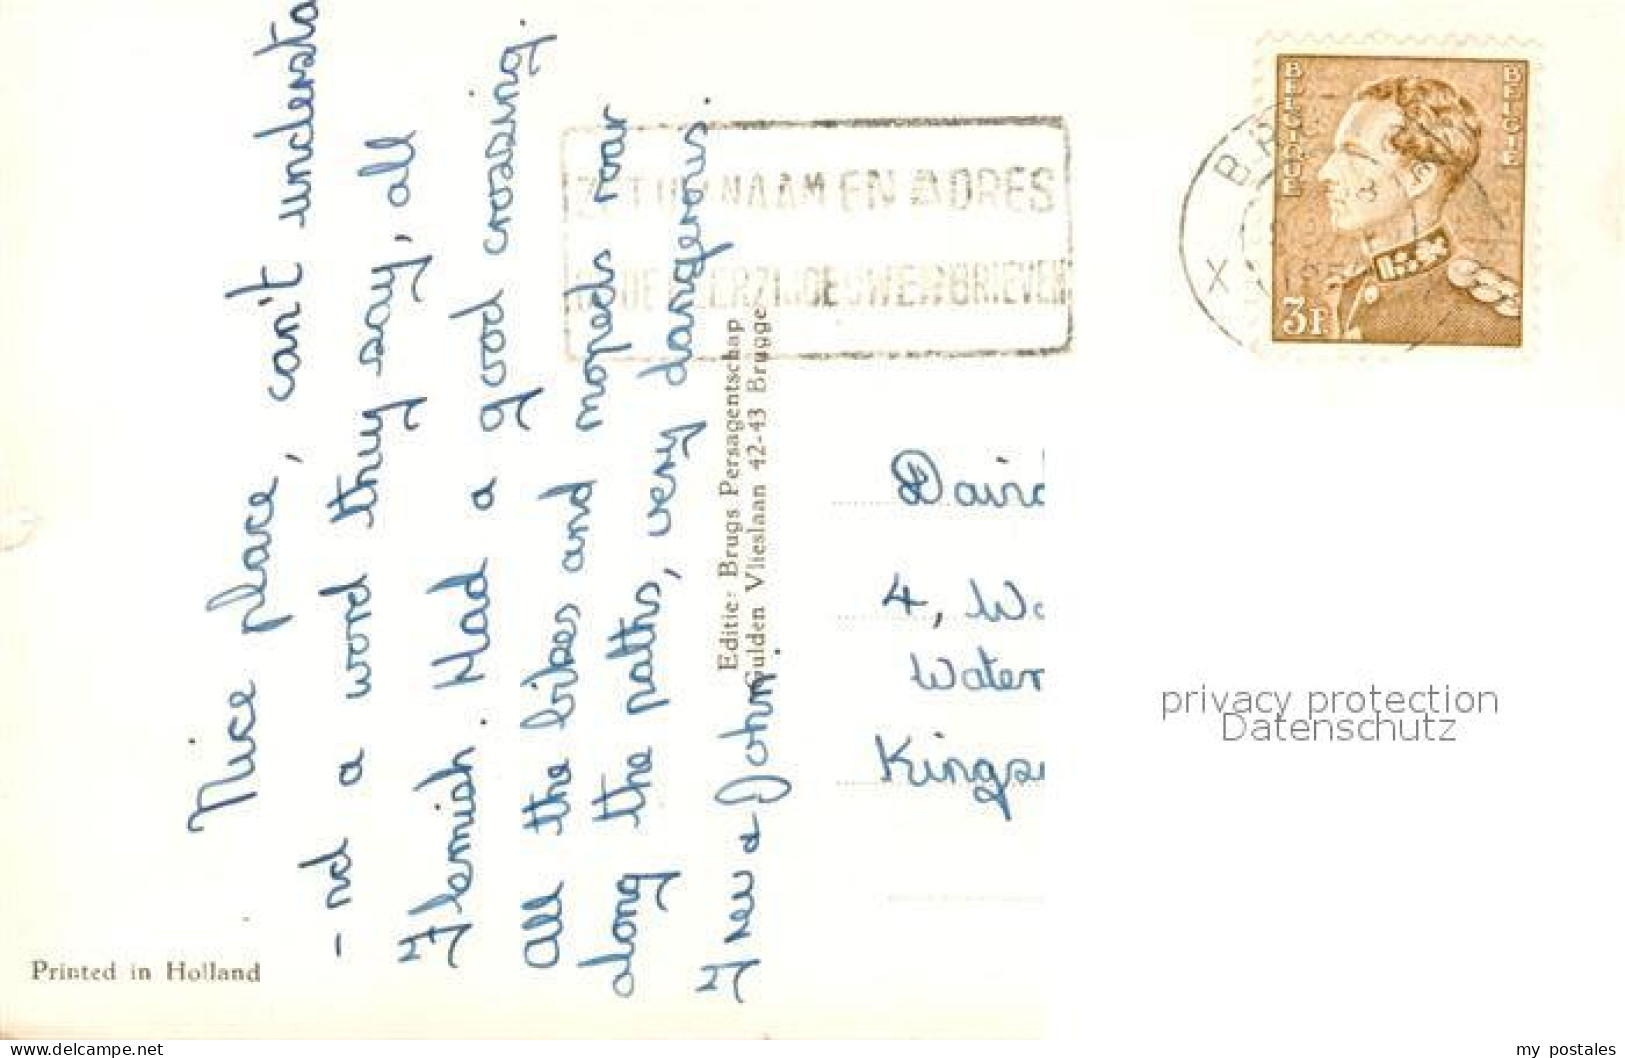 Nice place, can't understa
-nd a word they say, all
Flemish. Had a good crossing.
All the bikes and mopeds roar
along the paths, very dangerous.
Trev & John.
Editie: Brugs Persagentschap
Gulden Vlieslaan 42-43 Brugge
Printed in Holland
NAAM EN ADRES
BRIEVEN
BELGIQUE
BELGIE
3F
David
4, Wo
Water
Kings
privacy protection
Datenschutz
www.delcampe.net
my_postales